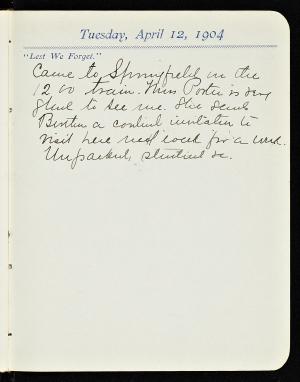 Tuesday, April 12, 1904
"Lest We Forget."
Came to Springfield on the
12.00 train. Miss Porter is very
glad to see me. She sends
Burton a cordial invitation to
visit here next week for a week.
Unpacked, studied &c.